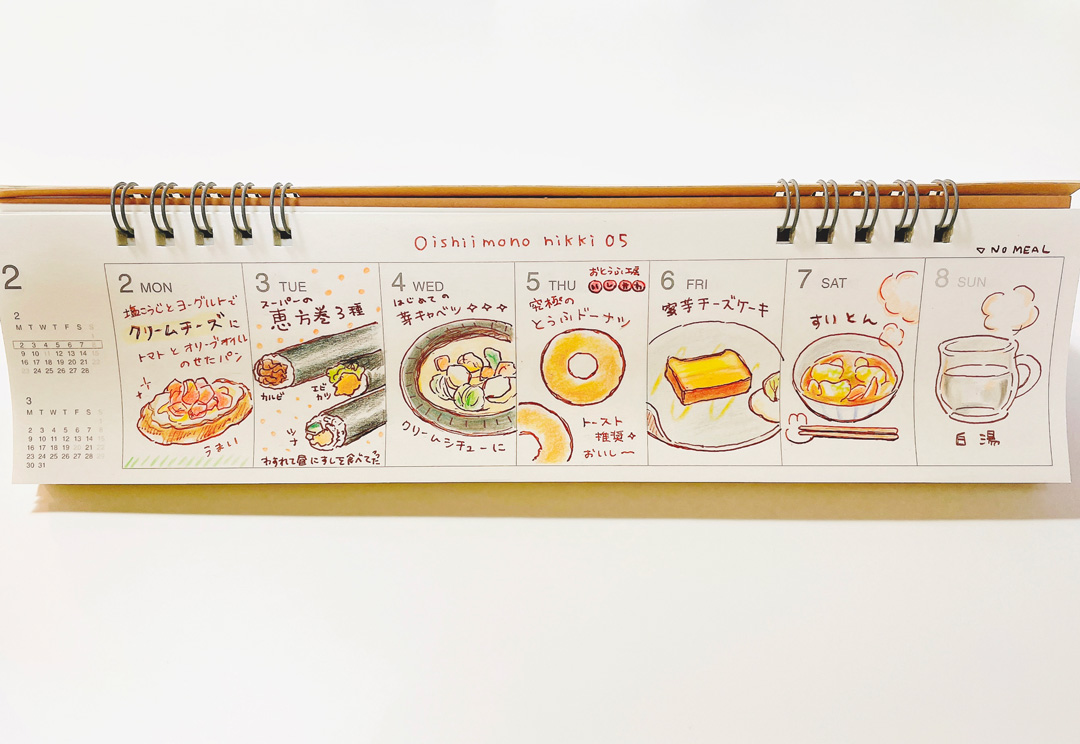 Oishiimono nikki 05
▽ NO MEAL
2
2
M T W T F S S
1
2 3 4 5 6 7 8
9 10 11 12 13 14 15
16 17 18 19 20 21 22
23 24 25 26 27 28
3
M T W T F S S
1
2 3 4 5 6 7 8
9 10 11 12 13 14 15
16 17 18 19 20 21 22
23 24 25 26 27 28 29
30 31
2 MON
塩こうじとヨーグルトで
クリームチーズに
トマトとオリーブオイル
のせたパン
うまい
3 TUE
スーパーの
恵方巻3種
カルビ
エビカツ
ツナ
わすれて昼にすしを食べてた
4 WED
はじめての
芽キャベツ
クリームシチューに
5 THU
おとうふ工房
いしかわ
究極の
とうふドーナツ
トースト
推奨
おいしー
6 FRI
蜜芋チーズケーキ
7 SAT
すいとん
8 SUN
白湯